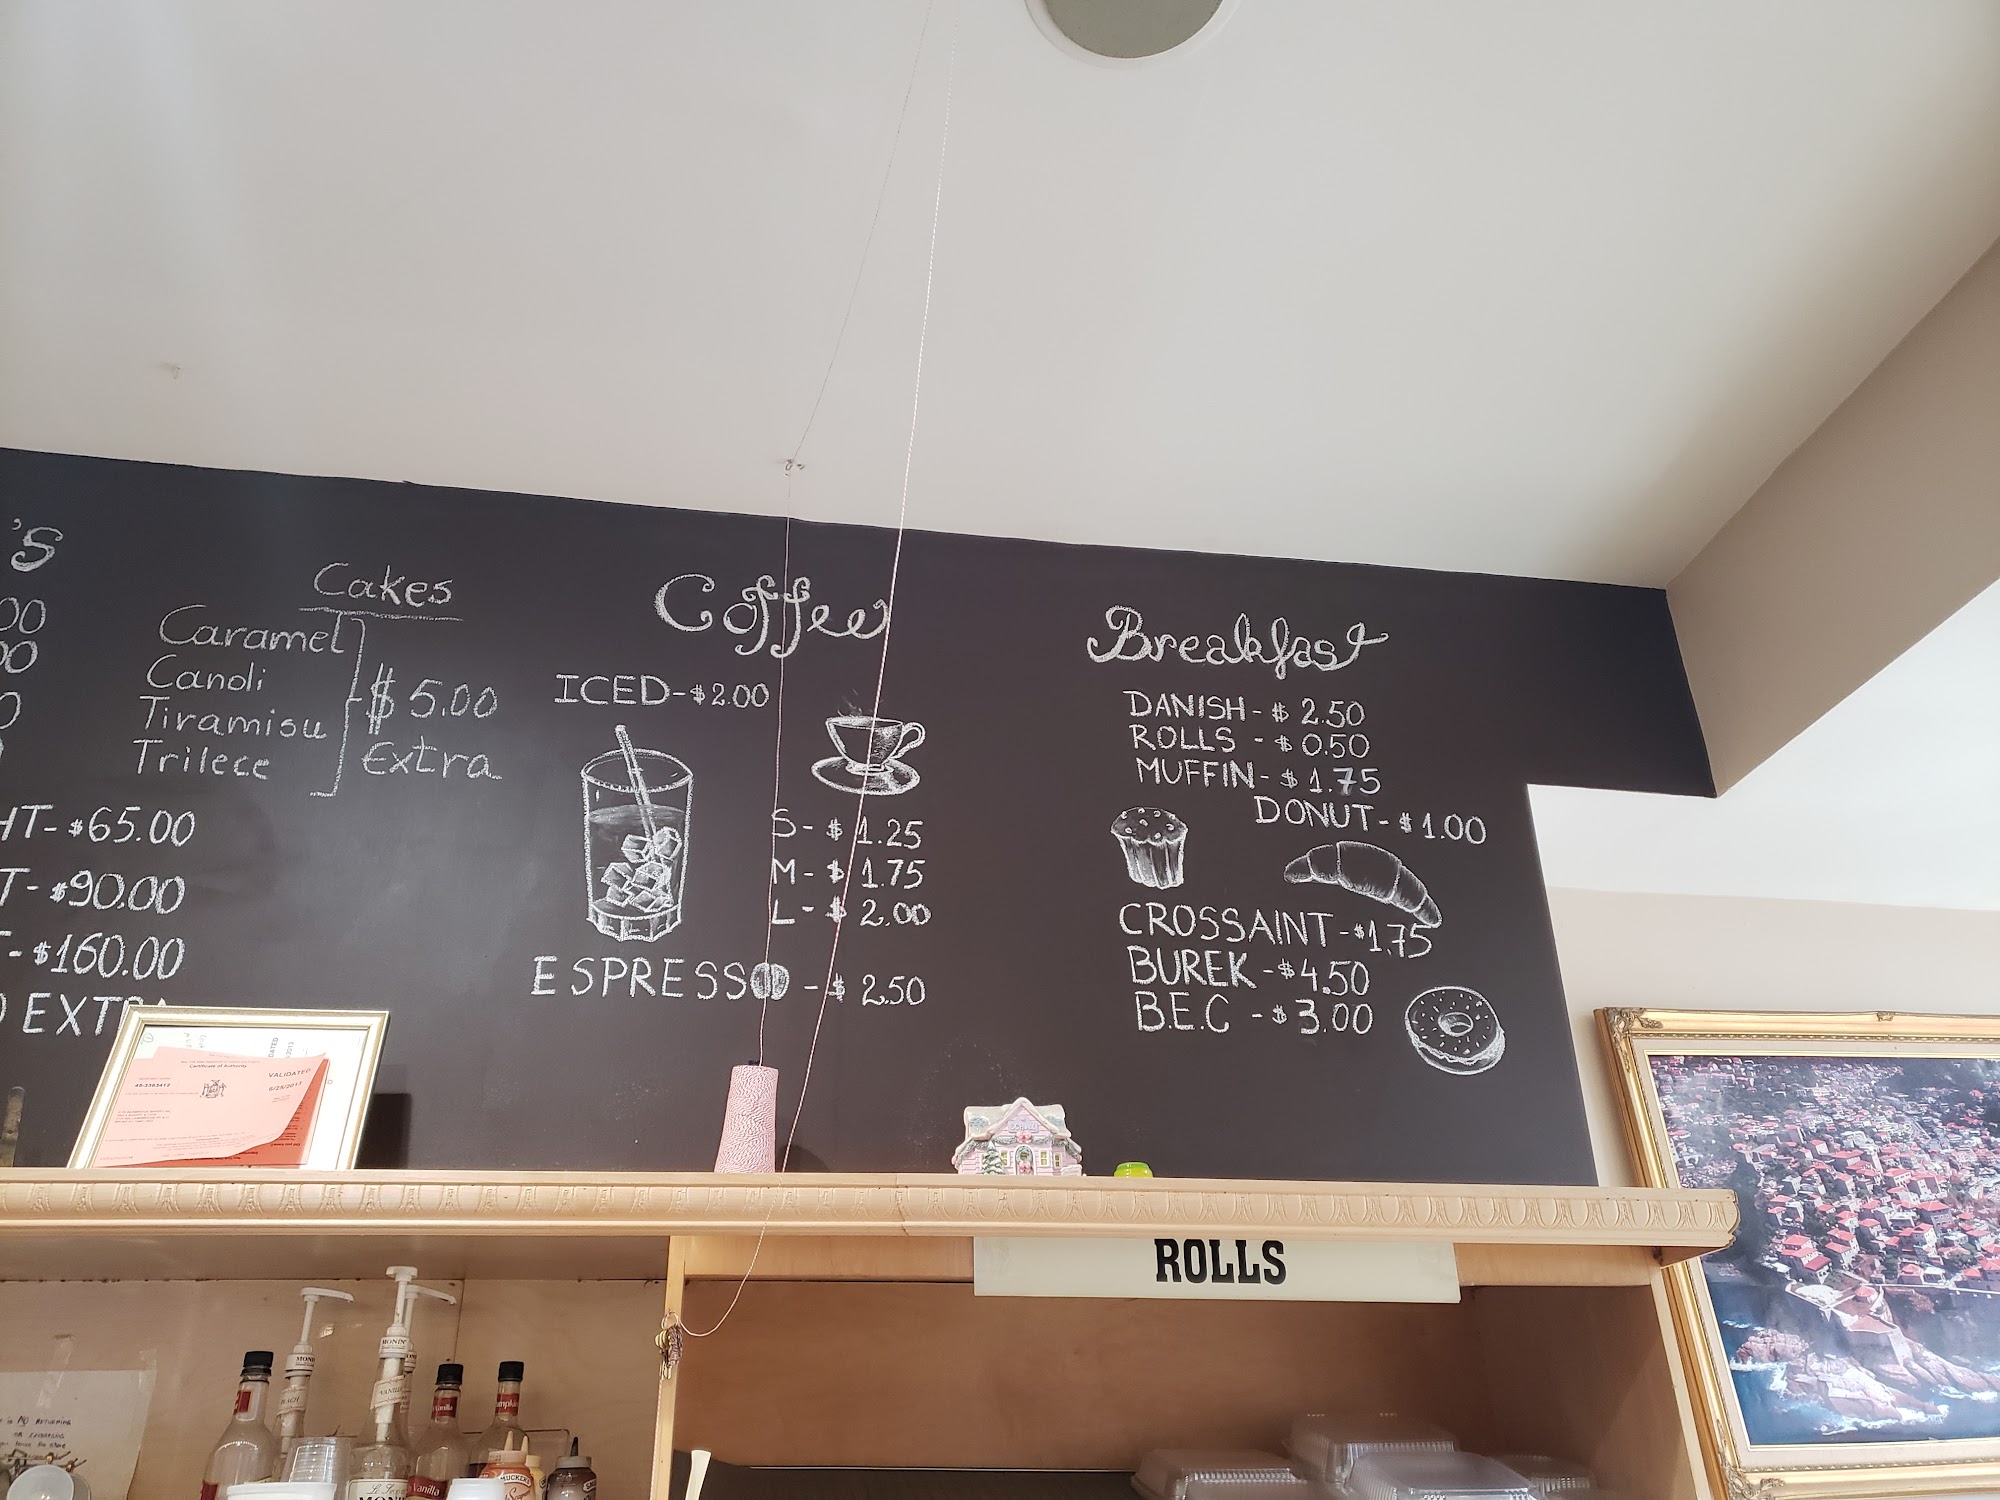 's
00
00
0
Cakes
Caramel
Canoli
Tiramisu
Trilece
$5.00
Extra
HT-$65.00
T-$90.00
T-$160.00
EXTRA
Coffee
ICED-$2.00
S-$ 1.25
M-$ 1.75
L-$ 2.00
ESPRESSO-$ 2.50
Breakfast
DANISH-$ 2.50
ROLLS -$ 0.50
MUFFIN-$ 1.75
DONUT-$1.00
CROSSAINT-$1.75
BUREK-$4.50
B.E.C -$3.00
Certificate of Authority
VALIDATED
6/25/2013
45-3363412
ROLLS
MONIN
MONIN
VANILLA
Vanilla
Vanilla
MONIN
is NO RETURNING
OR EXCHANGING